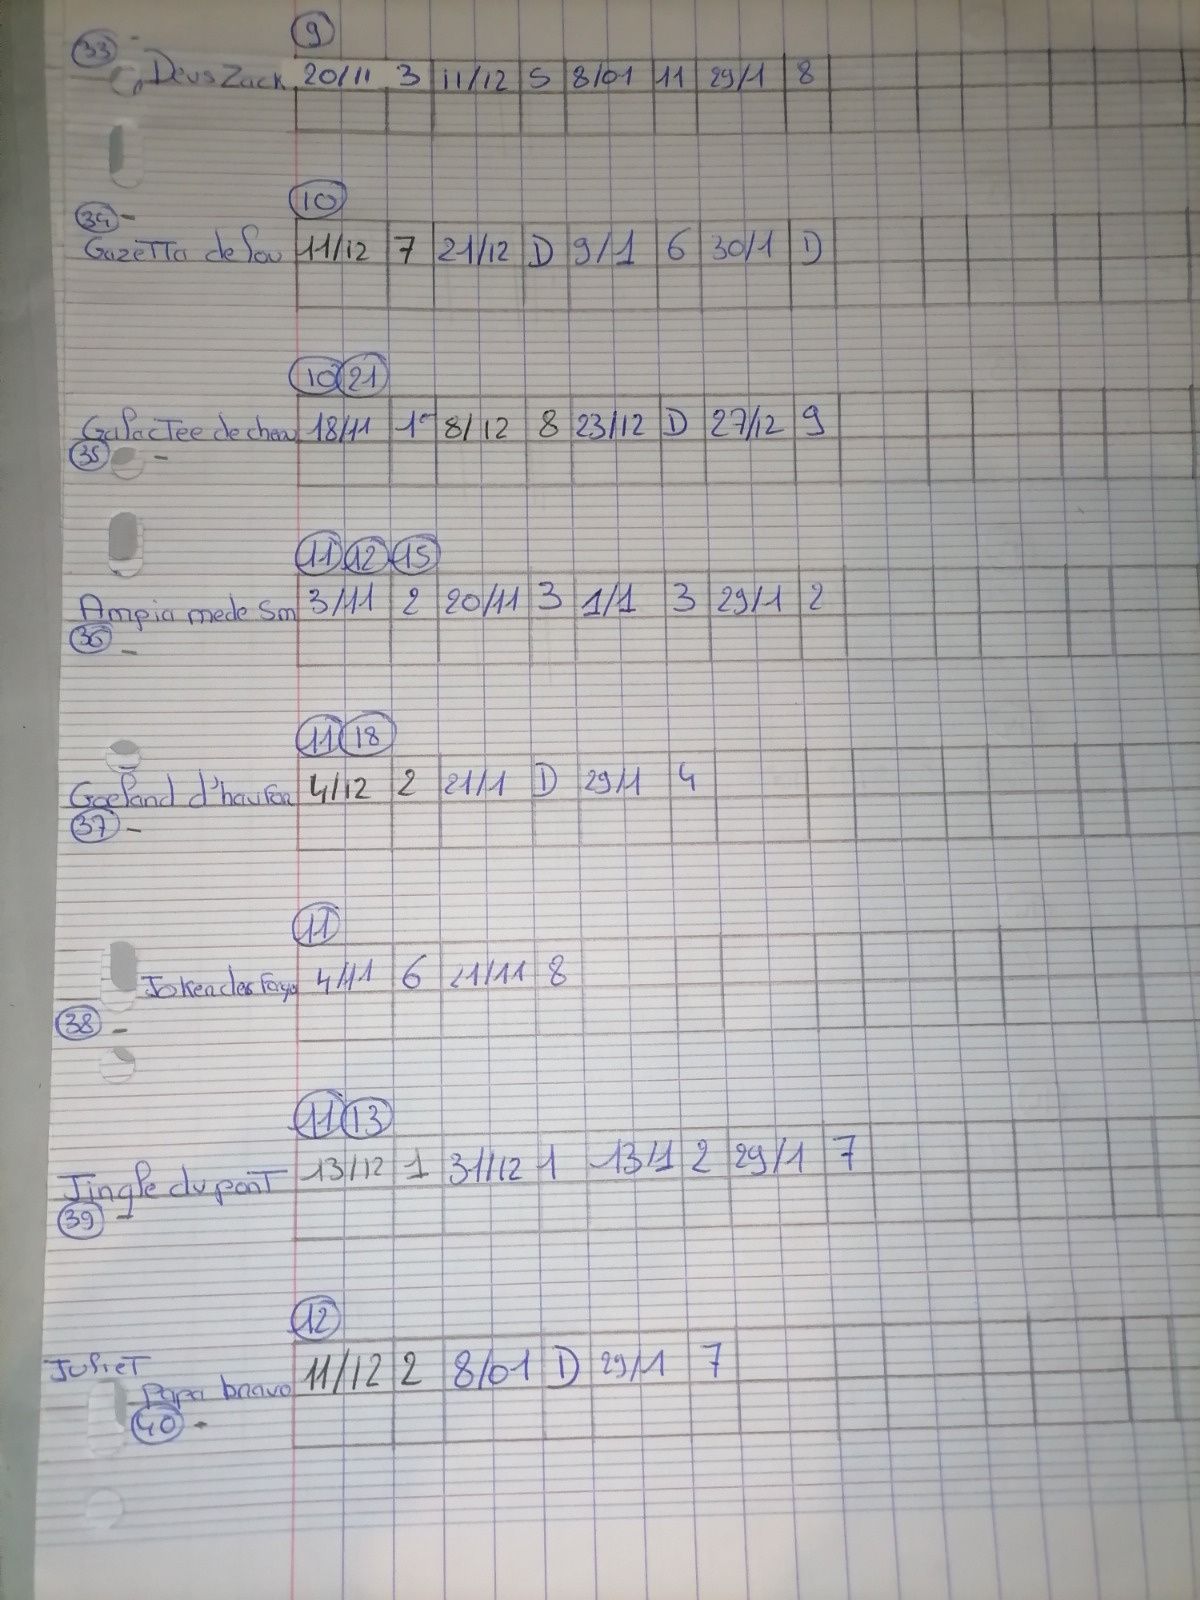 9
33 -
Deus Zack 20/11 3 11/12 5 8/01 11 29/1 8
10
34 -
Gazetta de lou 11/12 7 21/12 D 9/1 6 30/1 D
10 21
Galactee de chen 18/11 1e 8/12 8 23/12 D 27/12 9
35 -
11 12 15
Ampia mede Sm 3/11 2 20/11 3 1/1 3 29/1 2
36 -
11 18
Goeland d'haufor 4/12 2 21/1 D 29/1 4
37 -
11
4/11 6 21/11 8
38 -
11 13
Jingle du pont 13/12 1 31/12 1 13/1 2 29/1 7
39 -
12
Juliet
Papa bravo 11/12 2 8/01 D 29/1 7
40 -